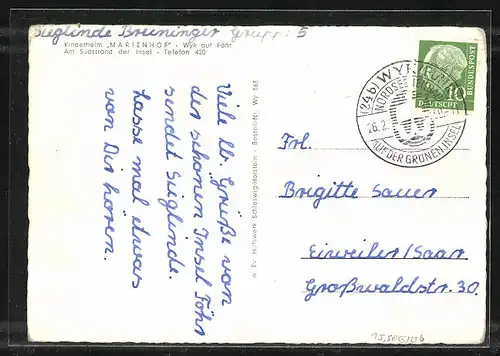 Sieglinde Breuninger Gruppe 5
Kinderheim „MARIENHOF" - Wyk auf Föhr
Am Südstrand der Insel - Telefon 420
Viele lb. Grüße von
der schönen Insel Föhr
sendet Sieglinde.
Lasse mal etwas
von Dir hören.
Schleswig-Holstein - Bestell-Nr. Wy 165
(24b) WYK
NORDSEE
26.2.
AUF DER GRÜNEN INSEL
10
DEUTSCHE
BUNDESPOST
Frl.
Brigitte Sauer
Einweiler/Saar
Großwaldstr. 30.